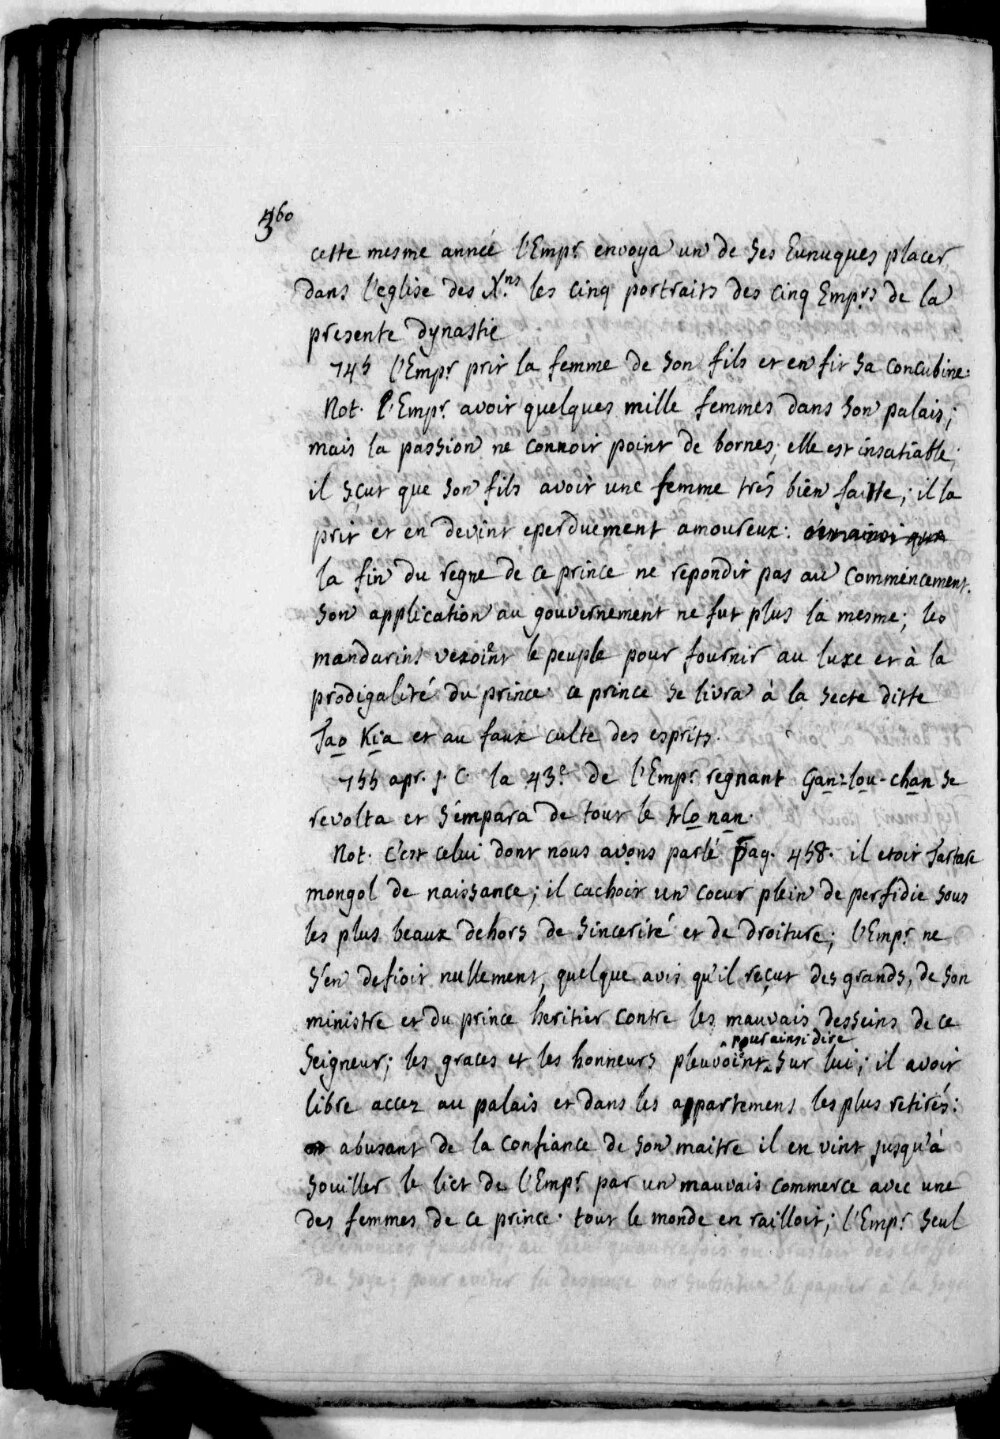 360
cette mesme année l'Empr. envoya un de ses Eunuques placer
dans l'eglise des X.ns les cinq portraits des cinq Emprs de la
presente dynastie
745 l'Empr. prit la femme de son fils et en fit sa concubine.
Not. l'Empr. avoit quelques mille femmes dans son palais;
mais la passion ne connoit point de bornes; elle est insatiable;
il scut que son fils avoit une femme trés bien faitte; il la
prit et en devint eperduement amoureux:
la fin du regne de ce prince ne repondit pas au commencement.
son application au gouvernement ne fut plus la mesme; les
mandarins vexoint le peuple pour fournir au luxe et à la
prodigalité du prince. ce prince se livra à la secte ditte
Tao Kia et au faux culte des esprits.
755 apr. J. C. la 43e de l'Empr. regnant Gan-lou-chan se
revolta et s'empara de tout le Ho nan.
Not. c'est celui dont nous avons parlé pag. 458. il etoit Tartare
mongol de naissance; il cachoit un coeur plein de perfidie sous
les plus beaux dehors de sincerité et de droiture; l'Empr. ne
s'en defioit nullement, quelque avis qu'il reçut des grands, de son
ministre et du prince heritier contre les mauvais desseins de ce
pour ainsi dire
Seigneur; les graces et les honneurs pleuvoint sur lui; il avoit
libre accez au palais et dans les appartemens les plus retirés:
abusant de la confiance de son maitre il en vint jusqu'à
souiller le lict de l'Empr. par un mauvais commerce avec une
des femmes de ce prince. tout le monde en railloit; l'Empr. seul